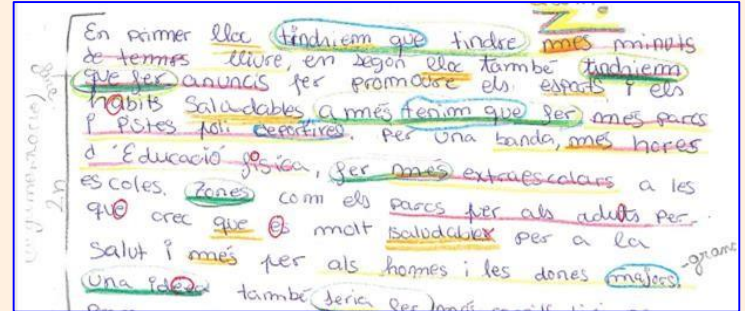 En primer lloc tindriem que tindre més minuts
de temes lliure, en segon lloc també tindriem
que fer anuncis per promoure els esports i els
hàbits saladables a més tenim que fer més parcs
i pistes poli deportives. Per una banda, més hores
d'Educació física, fer més extraescolars a les
escoles. Zones com els parcs per als adults per
que crec que es molt saludables per a la
Salut i més per als homes i les dones majors. -grans
una idea també seria fer més